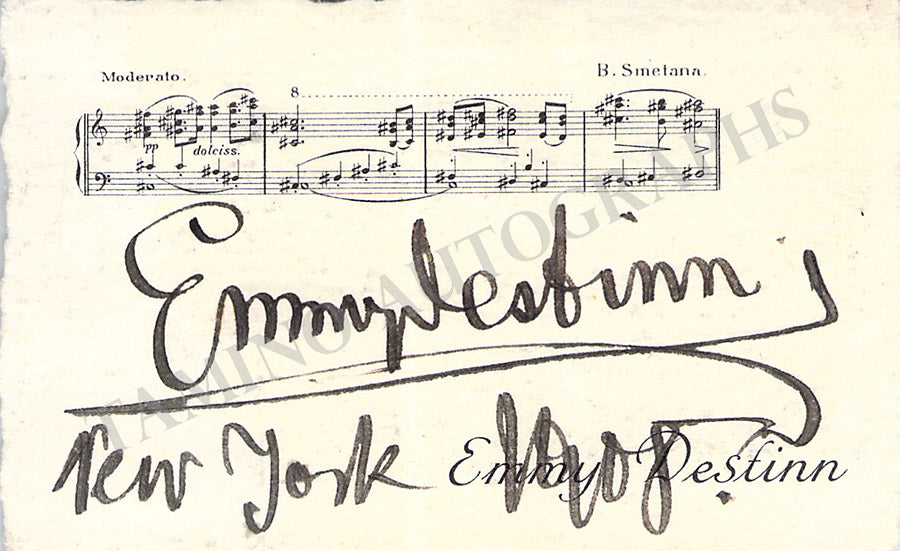 Moderato.
B. Smetana.
8
pp dolciss.
Emmy Destinn
New York
Emmy Destinn
TAMINO AUTOGRAPHS